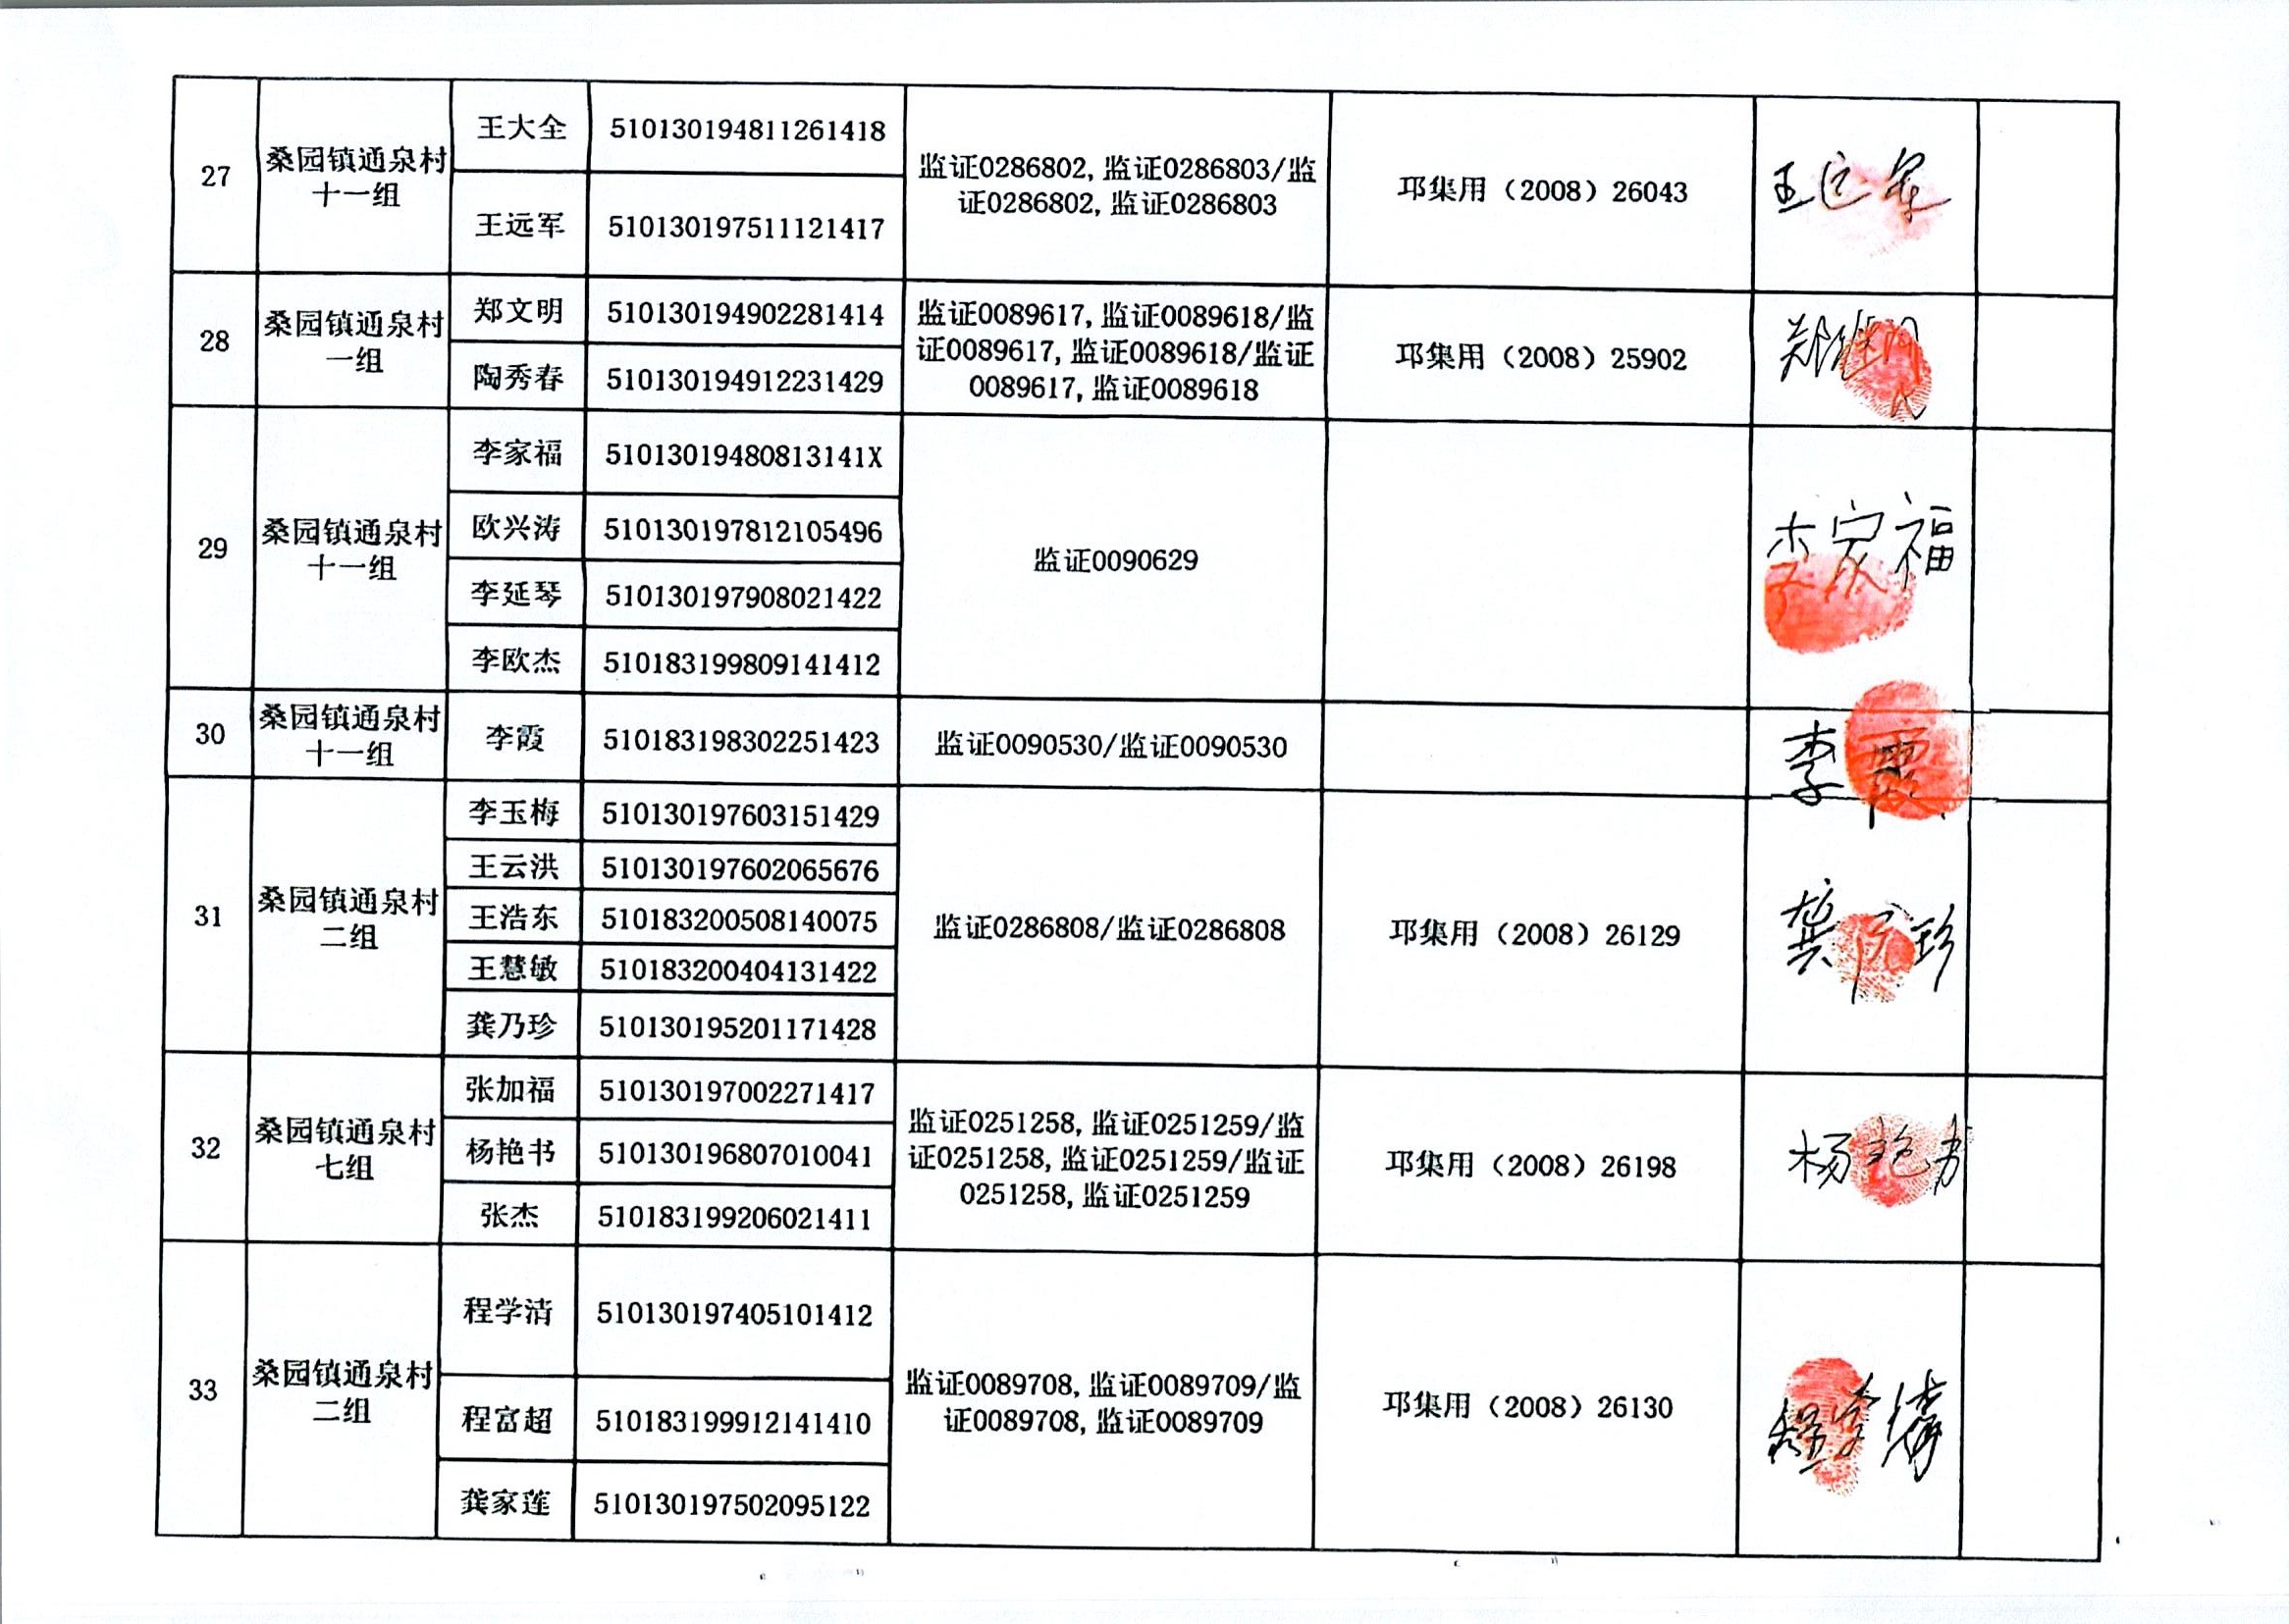 27
桑园镇通泉村
十一组
王大全
510130194811261418
王远军
510130197511121417
监证0286802, 监证0286803/监
证0286802, 监证0286803
邛集用（2008）26043
王远军
28
桑园镇通泉村
一组
郑文明
510130194902281414
陶秀春
510130194912231429
监证0089617, 监证0089618/监
证0089617, 监证0089618/监证
0089617, 监证0089618
邛集用（2008）25902
29
桑园镇通泉村
十一组
李家福
51013019480813141X
欧兴涛
510130197812105496
李延琴
510130197908021422
李欧杰
510183199809141412
监证0090629
李家福
30
桑园镇通泉村
十一组
李霞
510183198302251423
监证0090530/监证0090530
李霞
31
桑园镇通泉村
二组
李玉梅
510130197603151429
王云洪
510130197602065676
王浩东
510183200508140075
王慧敏
510183200404131422
龚乃珍
510130195201171428
监证0286808/监证0286808
邛集用（2008）26129
龚乃珍
32
桑园镇通泉村
七组
张加福
510130197002271417
杨艳书
510130196807010041
张杰
510183199206021411
监证0251258, 监证0251259/监
证0251258, 监证0251259/监证
0251258, 监证0251259
邛集用（2008）26198
杨艳书
33
桑园镇通泉村
二组
程学清
510130197405101412
程富超
510183199912141410
龚家莲
510130197502095122
监证0089708, 监证0089709/监
证0089708, 监证0089709
邛集用（2008）26130
程学清